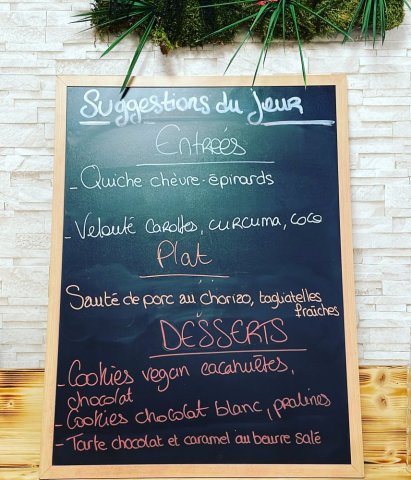 Suggestions du jour
Entrées
- Quiche chèvre-épinards
- Velouté carottes, curcuma, coco
Plat
Sauté de porc au chorizo, tagliatelles
fraîches
DESSERTS
- Cookies vegan cacahuètes,
chocolat
- Cookies chocolat blanc, pralines
- Tarte chocolat et caramel au beurre salé